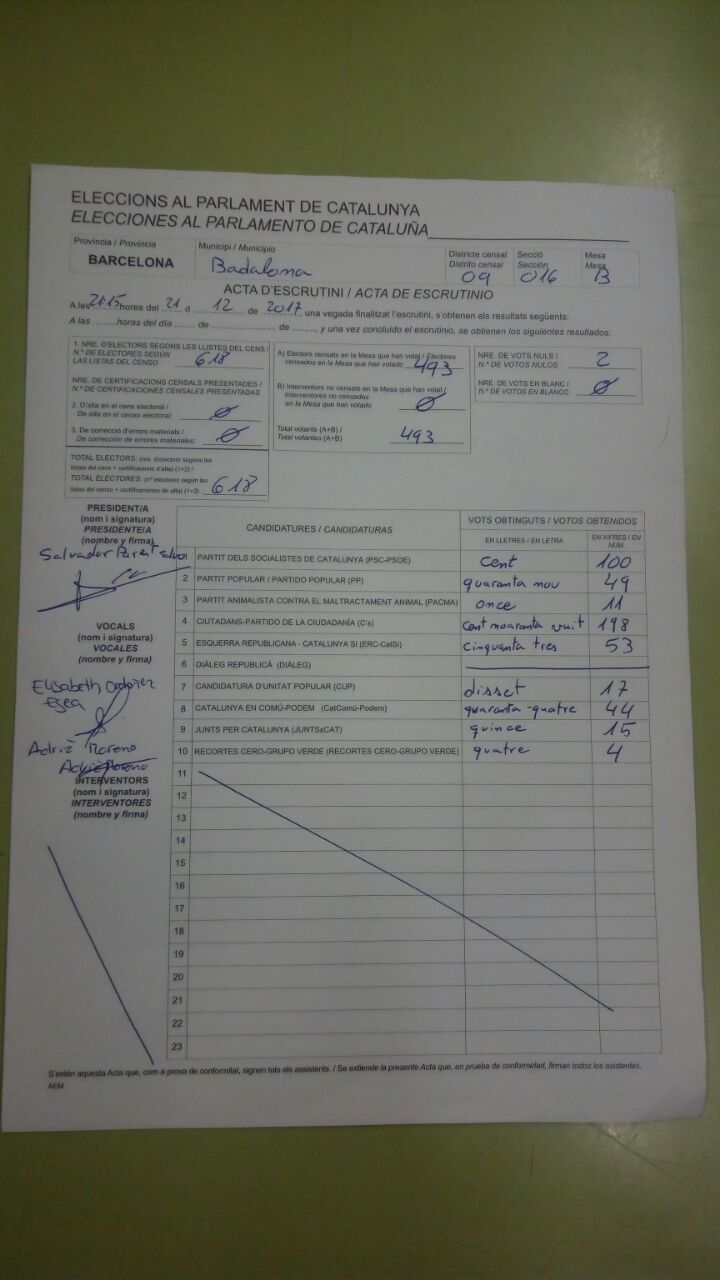 ELECCIONS AL PARLAMENT DE CATALUNYA
ELECCIONES AL PARLAMENTO DE CATALUÑA
Província / Provincia
BARCELONA
Municipi / Municipio
Badalona
Districte censal
Distrito censal
09
Secció
Sección
016
Mesa
Mesa
B
ACTA D'ESCRUTINI / ACTA DE ESCRUTINIO
A les 21:15 hores del 21 d 12 de 2017, una vegada finalitzat l'escrutini, s'obtenen els resultats següents:
A las ........ horas del día ....... de .................. de ........, y una vez concluido el escrutinio, se obtienen los siguientes resultados:
1. NRE. D'ELECTORS SEGONS LES LLISTES DEL CENS /
N.º DE ELECTORES SEGÚN
LAS LISTAS DEL CENSO 618
NRE. DE CERTIFICACIONS CENSALS PRESENTADES /
N.º DE CERTIFICACIONES CENSALES PRESENTADAS
2. D'alta en el cens electoral /
De alta en el censo electoral: Ø
3. De correcció d'errors materials /
De corrección de errores materiales: Ø
TOTAL ELECTORS: (nre. d'electors segons les
llistes del cens + certificacions d'alta) (1+2) /
TOTAL ELECTORES: (nº electores según las
listas del censo + certificaciones de alta) (1+2) 618
A) Electors censats en la Mesa que han votat / Electores
censados en la Mesa que han votado 493
B) Interventors no censats en la Mesa que han votat /
Interventores no censados
en la Mesa que han votado Ø
Total votants (A+B) /
Total votantes (A+B) 493
NRE. DE VOTS NULS /
N.º DE VOTOS NULOS 2
NRE. DE VOTS EN BLANC /
N.º DE VOTOS EN BLANCO Ø
PRESIDENT/A
(nom i signatura)
PRESIDENTE/A
(nombre y firma)
Salvador
VOCALS
(nom i signatura)
VOCALES
(nombre y firma)
Elisabeth Ordoñez
Egea
Adrià Moreno
Adrià Moreno
INTERVENTORS
(nom i signatura)
INTERVENTORES
(nombre y firma)
CANDIDATURES / CANDIDATURAS
VOTS OBTINGUTS / VOTOS OBTENIDOS
EN LLETRES / EN LETRA
EN XIFRES / EN NÚM.
1 PARTIT DELS SOCIALISTES DE CATALUNYA (PSC-PSOE) cent 100
2 PARTIT POPULAR / PARTIDO POPULAR (PP) quaranta nou 49
3 PARTIT ANIMALISTA CONTRA EL MALTRACTAMENT ANIMAL (PACMA) once 11
4 CIUTADANS-PARTIDO DE LA CIUDADANÍA (C's) cent noaranta vuit 198
5 ESQUERRA REPUBLICANA - CATALUNYA SÍ (ERC-CatSí) cinquanta tres 53
6 DIÀLEG REPUBLICÀ (DIÀLEG)
7 CANDIDATURA D'UNITAT POPULAR (CUP) disset 17
8 CATALUNYA EN COMÚ-PODEM (CatComú-Podem) quaranta-quatre 44
9 JUNTS PER CATALUNYA (JUNTSxCAT) quince 15
10 RECORTES CERO-GRUPO VERDE (RECORTES CERO-GRUPO VERDE) quatre 4
11
12
13
14
15
16
17
18
19
20
21
22
23
S'estén aquesta Acta que, com a prova de conformitat, signen tots els assistents. / Se extiende la presente Acta que, en prueba de conformidad, firman todos los asistentes.
AEM